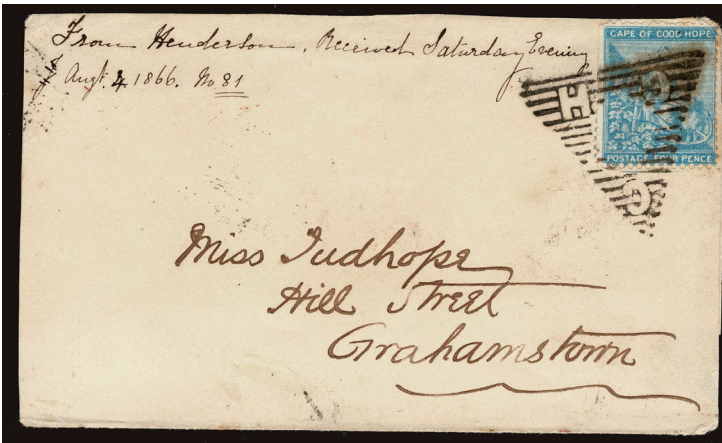 From Henderson, Received Saturday Evening
Augt. 4 1866. No 81
CAPE OF GOOD HOPE
POSTAGE FOUR PENCE
Miss Judhope
Hill Street
Grahamstown